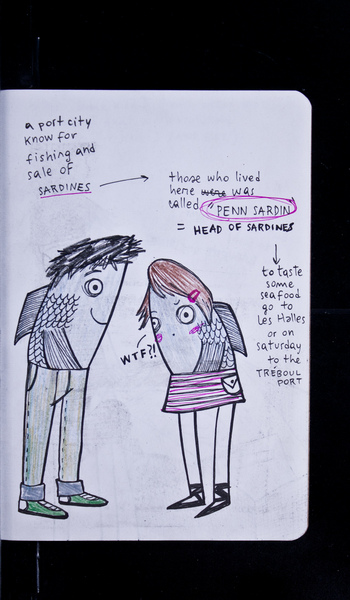 a port city
know for
fishing and
sale of
SARDINES
those who lived
here were was
called "PENN SARDIN"
= HEAD OF SARDINES
to taste
some
seafood
go to
Les Halles
or on
saturday
to the
TRÉBOUL
PORT
WTF?!